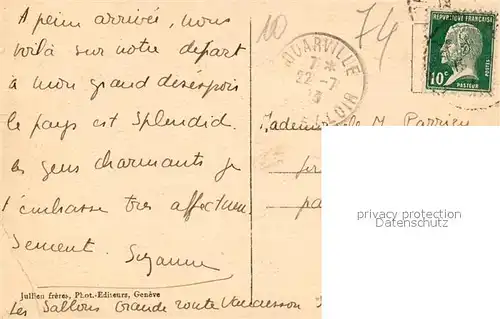 A peine arrivée, nous
voilà sur notre départ
à mon grand désespoir
le pays est splendid.
les gens charmants je
t'embrasse tres affectueu
sement. Suzanne
Jullien frères, Phot.-Editeurs, Genève
Les Sallons Grande route
10
74
OUARVILLE
7 *
22-7
LOIR
REPUBLIQUE FRANÇAISE
10c
POSTES
PASTEUR
Mademoiselle M.
privacy protection
copyright protection